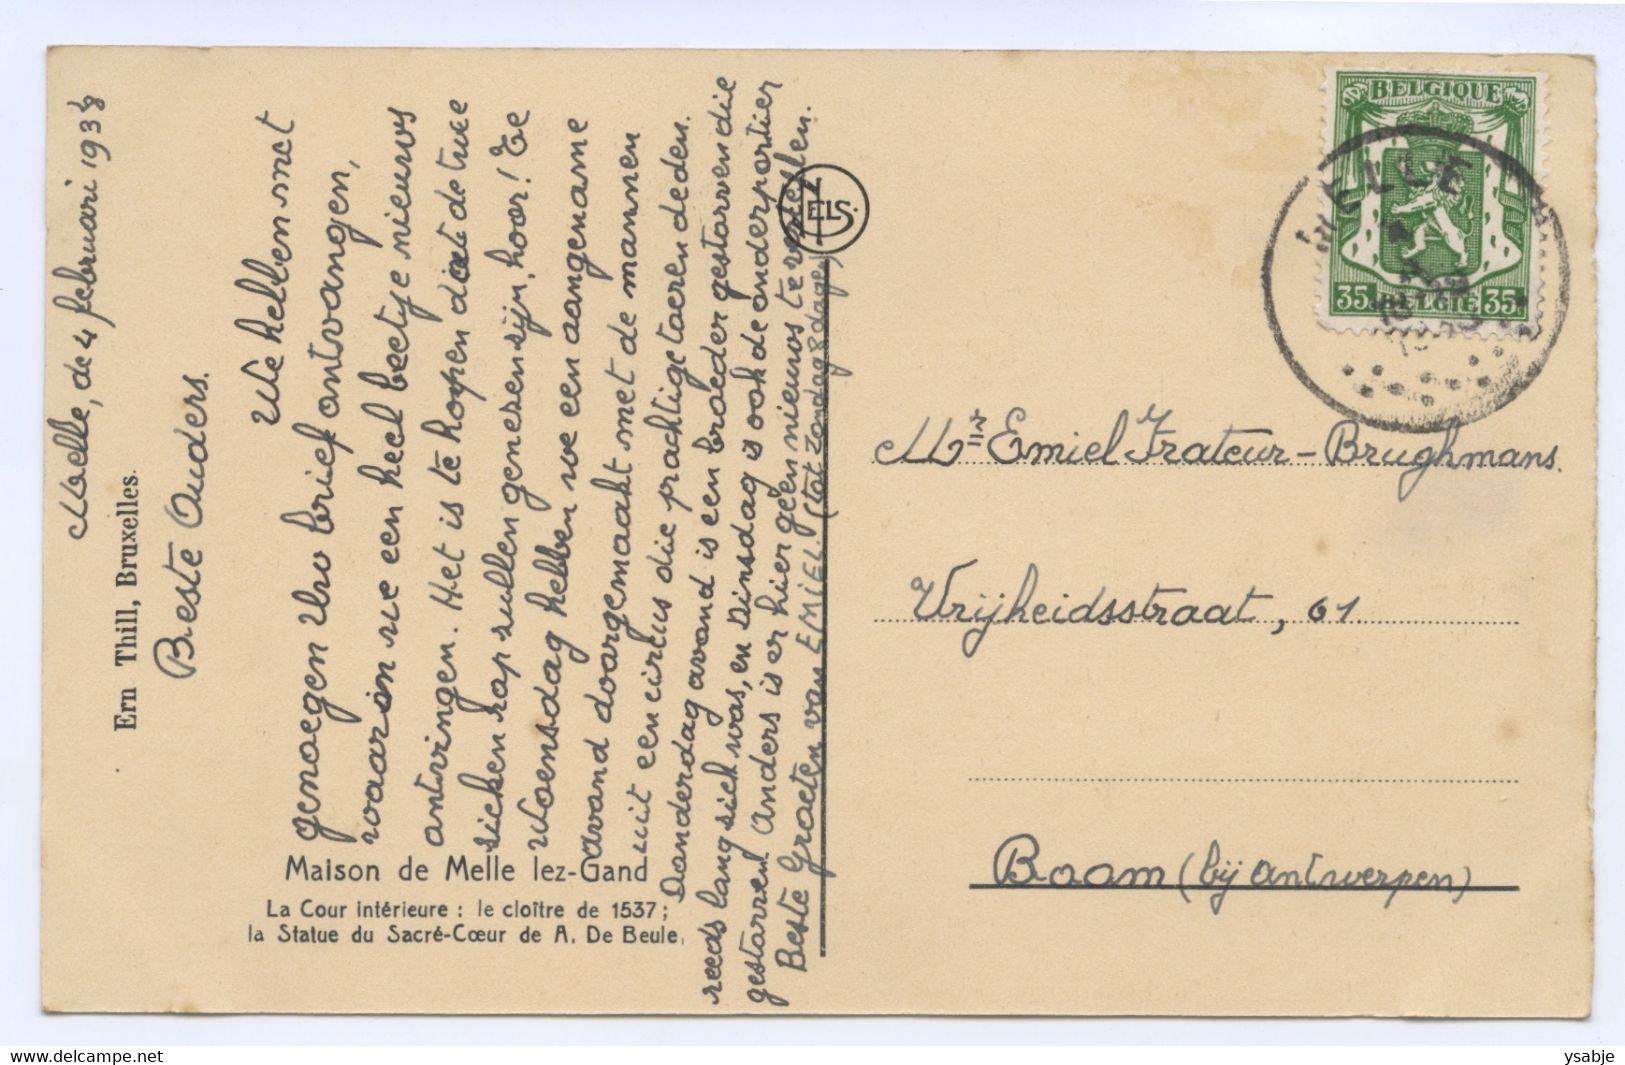 Melle, de 4 februari 1938
Beste Ouders.
We hebben met
genoegen Uw brief ontvangen,
waarin we een heel beetje nieuws
ontvingen. Het is te hopen dat de twee
sieken rap sullen genesen sijn, hoor! Te
Woensdag hebben we een aangename
avond doorgemaakt met de mannen
uit een circus die prachtige toeren deden.
Donderdag avond is een broeder gestorven die
reeds lang siek was, en Dinsdag is ook de onderportier
gestorven. Anders is er hier geen nieuws te vertellen.
Beste Groeten van EMIEL. (tot Zondag 8 dage)
Ern Thill, Bruxelles.
Maison de Melle lez-Gand
La Cour intérieure : le cloître de 1537 ;
la Statue du Sacré-Cœur de A. De Beule.
NELS.
BELGIQUE
35c BELGIE 35c
MELLE
Mr Emiel Frateur-Brughmans.
Vrijheidsstraat, 61
Boom (bij Antwerpen)
www.delcampe.net
ysabje